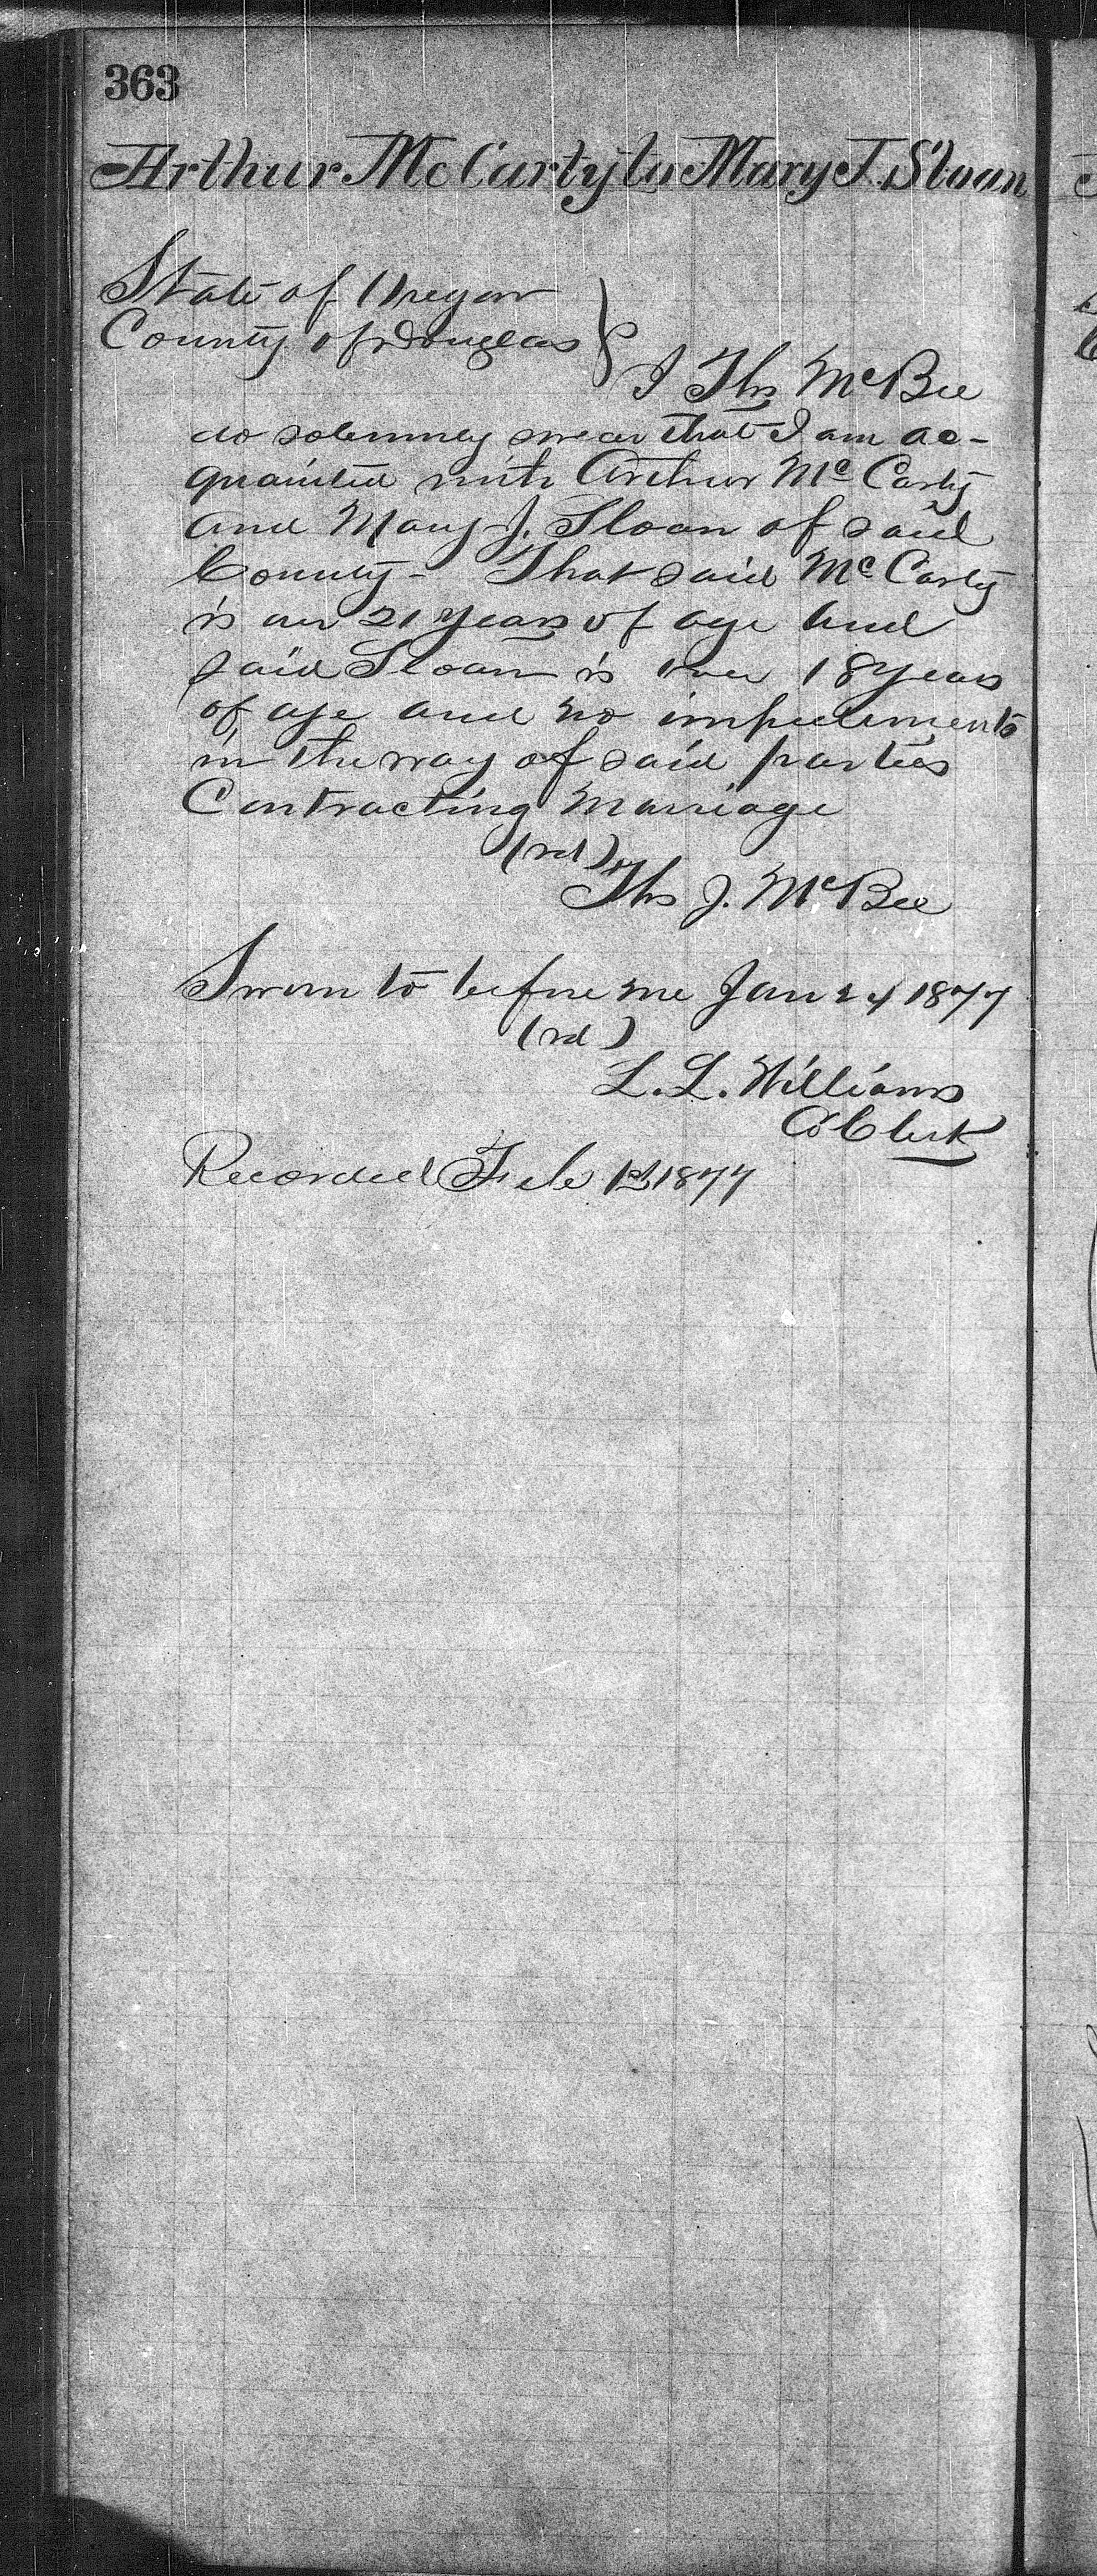 363
Arthur McCarty to Mary J. Sloan
State of Oregon
County of Douglas
I Ths McBee
do solemnly swear that I am ac-
quainted with Arthur McCarty
and Mary J. Sloan of said
County - That said McCarty
is over 21 years of age and
said Sloan is over 18 years
of age and no impediments
in the way of said parties
Contracting Marriage
Ths J. McBee
Sworn to before me Jan 24 1877
L. L. Williams
Co Clerk
Recorded Feb 1st 1877